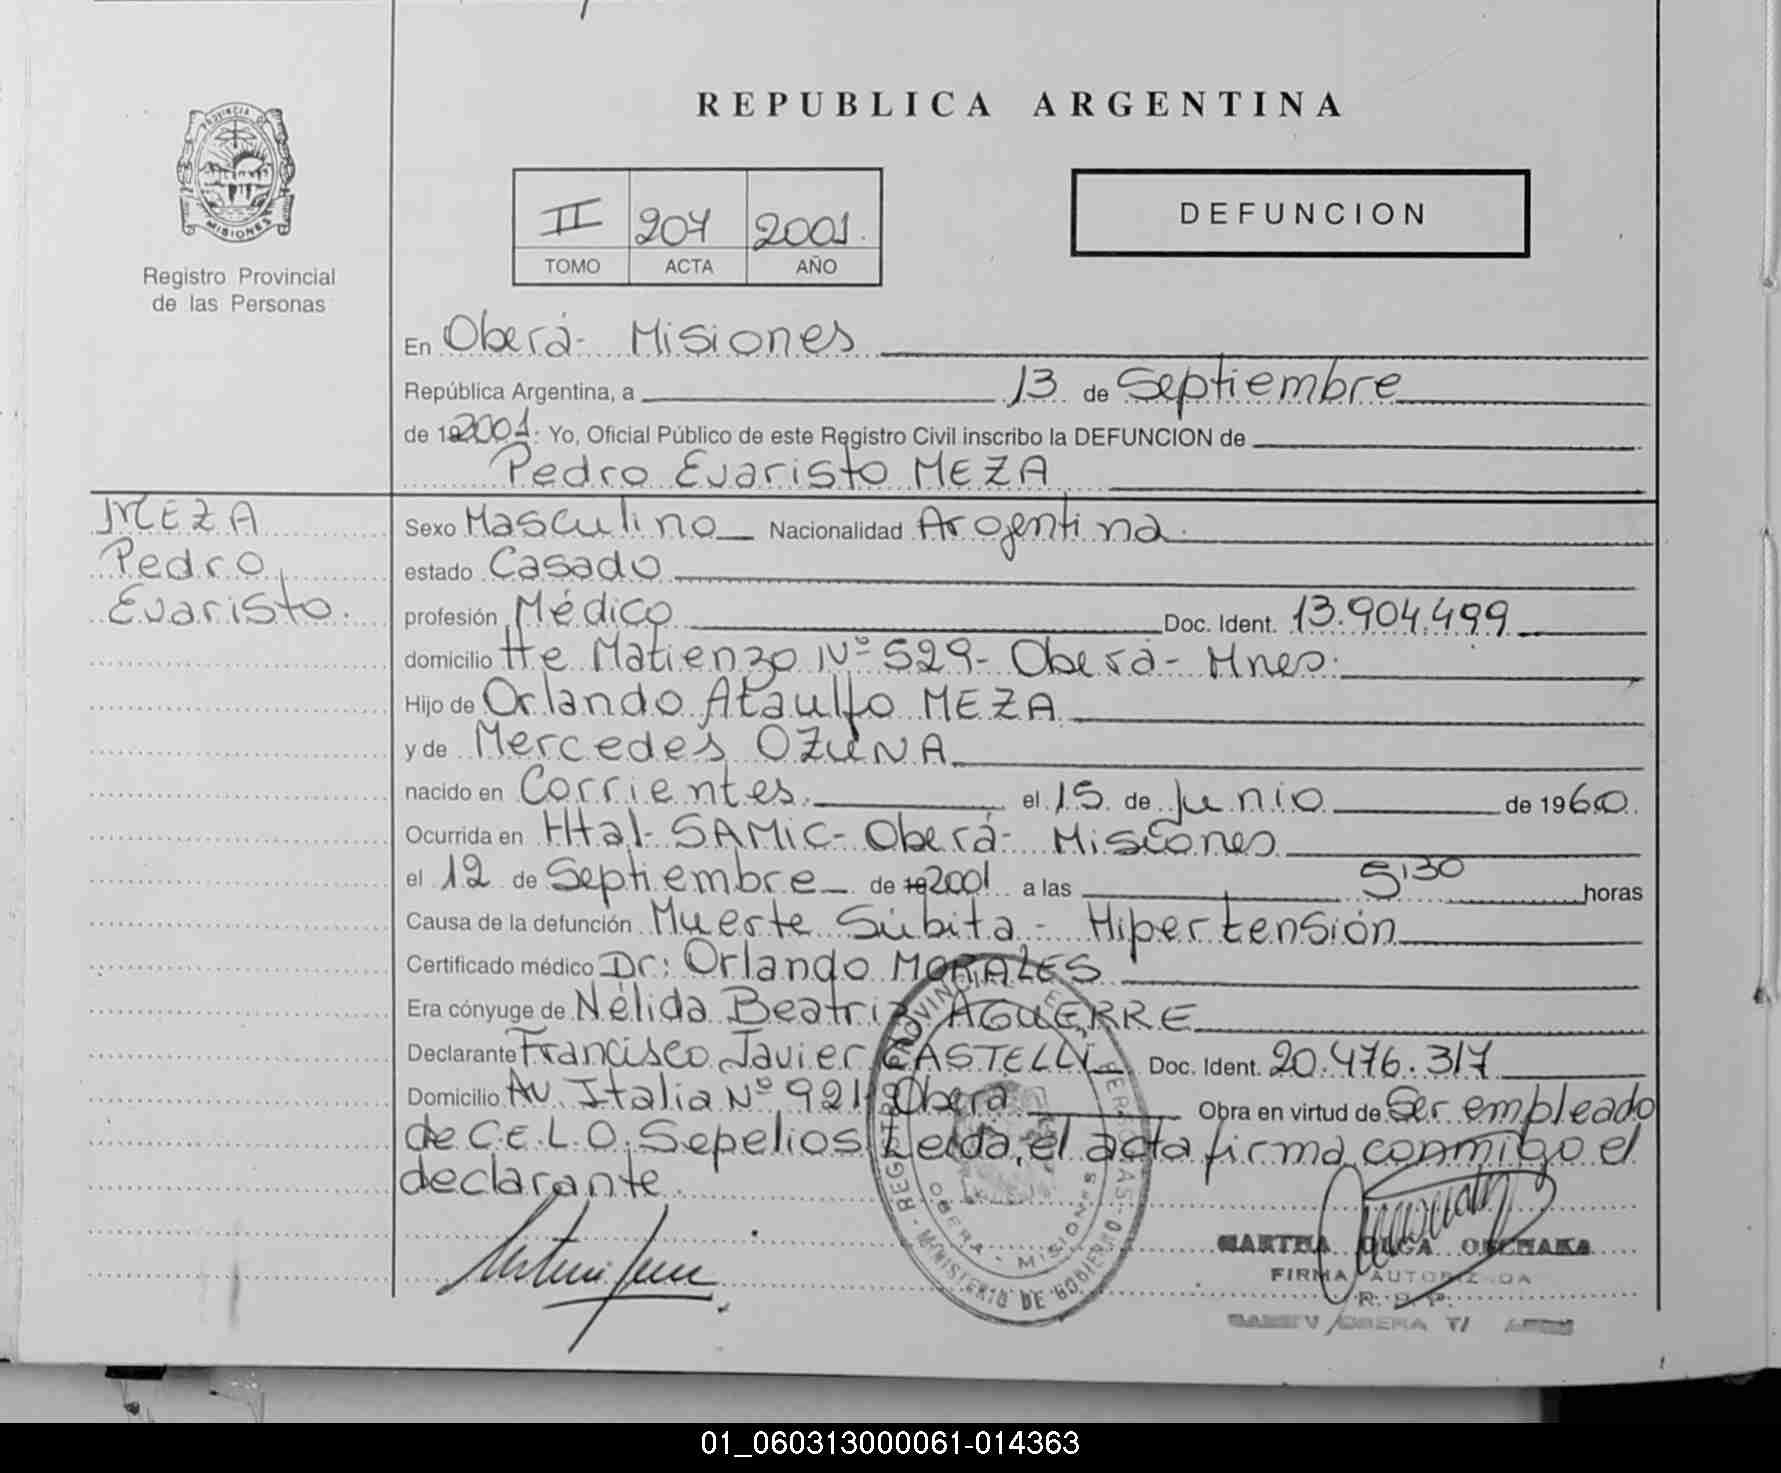 REPUBLICA ARGENTINA
PROVINCIA DE
MISIONES
Registro Provincial
de las Personas
II 204 2001.
TOMO ACTA AÑO
DEFUNCION
En Oberá- Misiones
República Argentina, a 13 de Septiembre
de 192001. Yo, Oficial Público de este Registro Civil inscribo la DEFUNCION de
Pedro Evaristo MEZA
MEZA
Pedro
Evaristo.
Sexo Masculino Nacionalidad Argentina.
estado Casado
profesión Médico Doc. Ident. 13.904.499
domicilio Tte Matienzo Nº 529- Oberá- Mnes.
Hijo de Orlando Ataulfo MEZA
y de Mercedes OZUNA
nacido en Corrientes. el 15 de Junio de 1960.
Ocurrida en Htal- SAMIC- Oberá- Misiones
el 12 de Septiembre de 192001 a las 5:30 horas
Causa de la defunción Muerte Súbita- Hipertensión
Certificado médico Dr: Orlando MORALES
Era cónyuge de Nélida Beatriz AGUERRE
Declarante Francisco Javier CASTELLI Doc. Ident. 20.476.317
Domicilio Av. Italia Nº 921- Oberá Obra en virtud de Ser empleado
de C.E.L.O. Sepelios. Leida el acta firma conmigo el
declarante.
OBERA - MISIONES
MINISTERIO DE GOBIERNO
MARTHA OLGA
FIRMA AUTORIZADA
R. P. P.
01_060313000061-014363